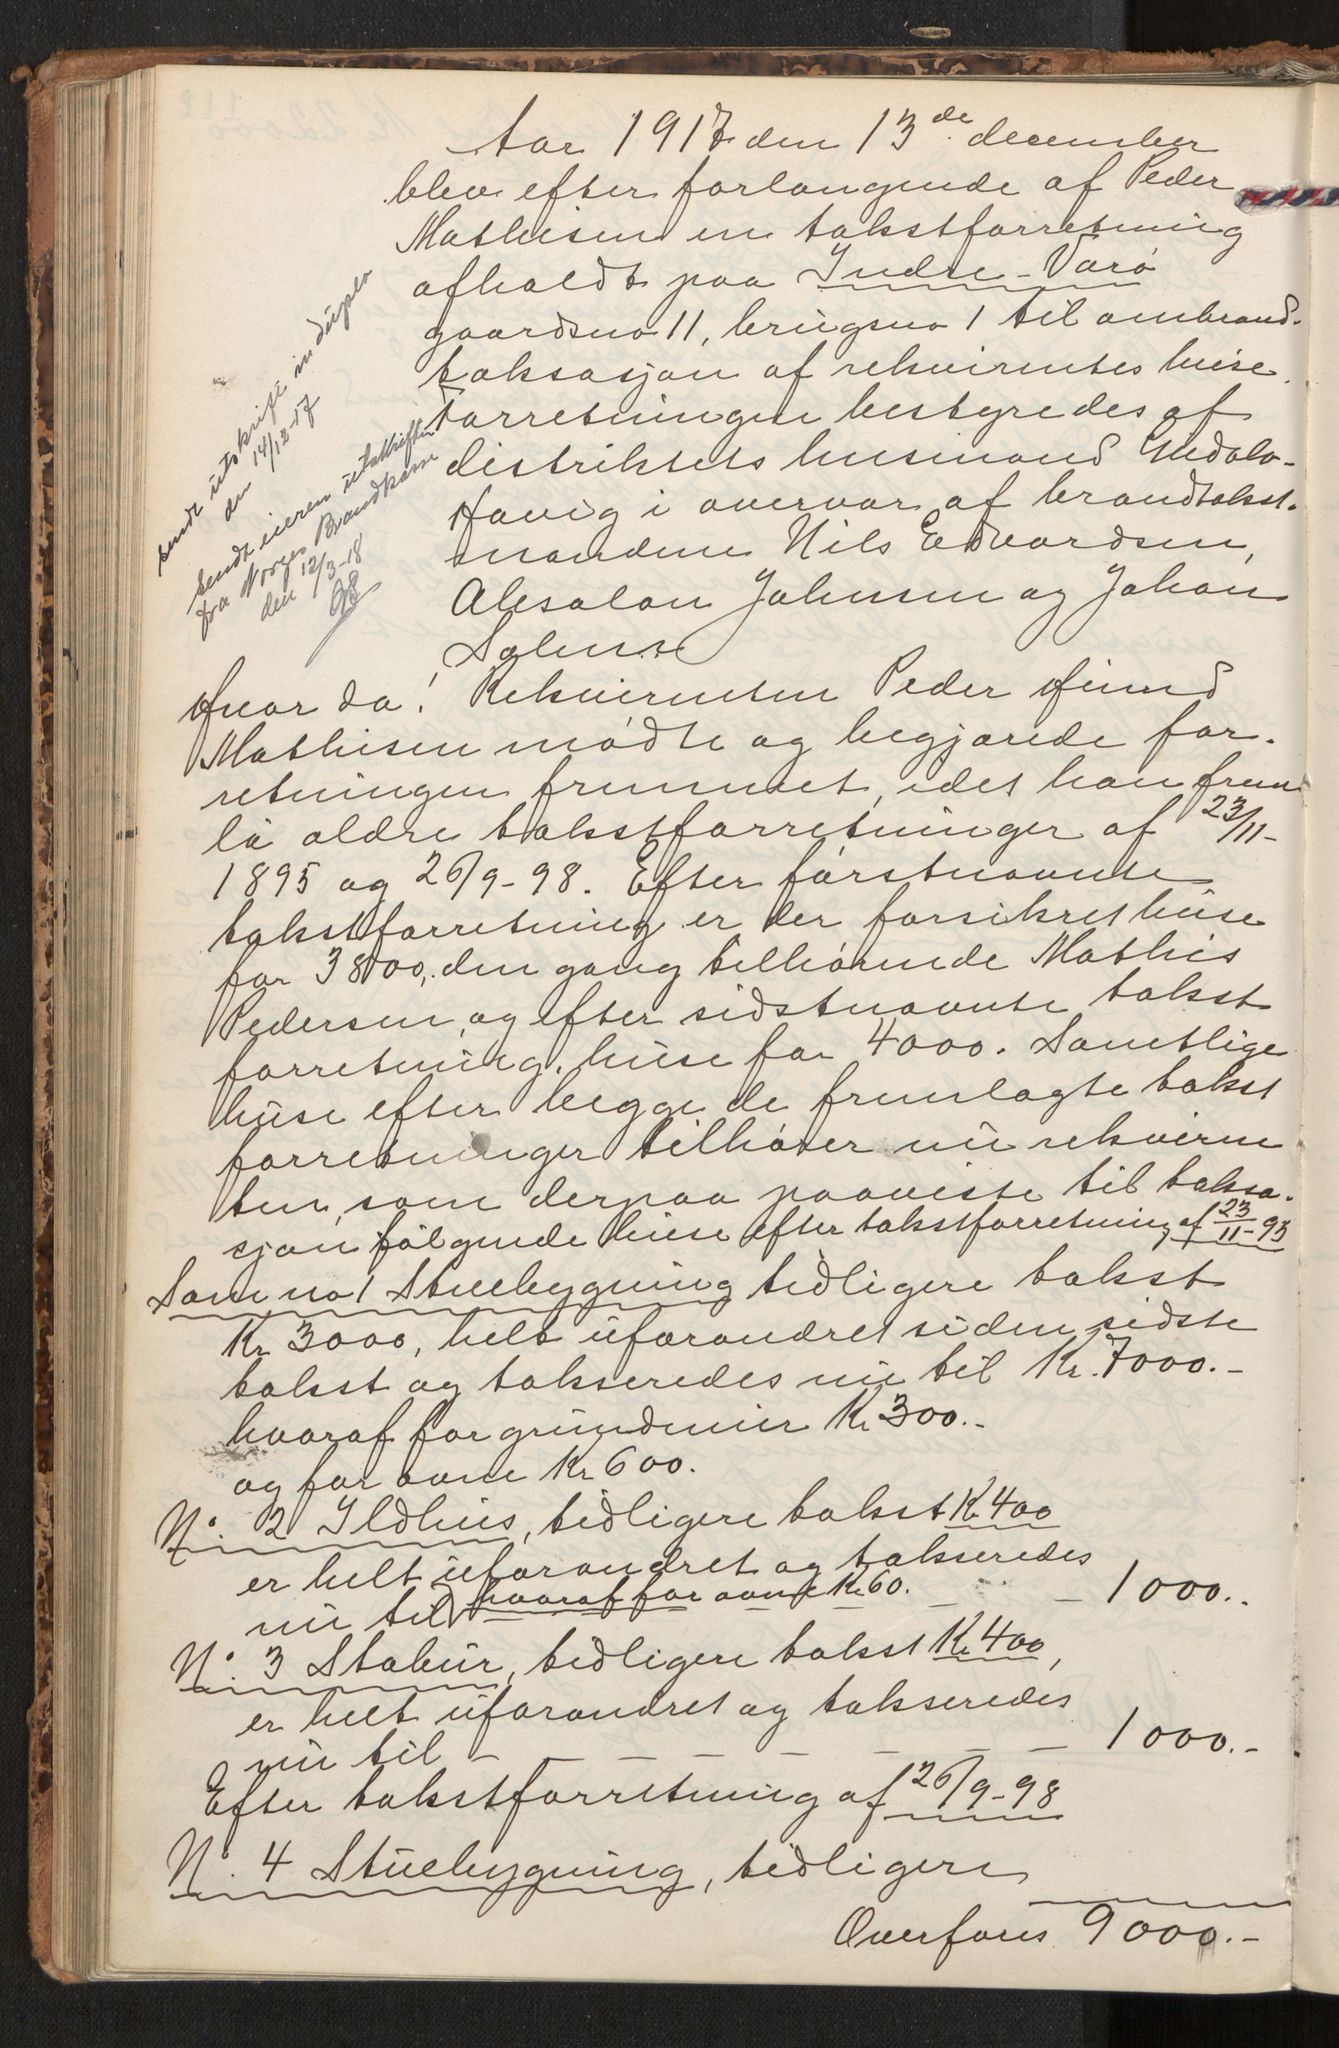 Aar 1917 den 13de december
blev efter forlangende af Peder
Mathisen en takstforretning
afholdt paa Indre-Varø
gaardsno 11, brugsno 1 til ombrand-
taksasjon af rekvirentes huse.
Forretningen bestyredes af
distriktets lensmand
Havig i overvær af brandtakst-
mændene Nils Edvardsen,
Absalon Johnsen og Johan
Solems
sendt utskrift in duplo
den 14/12-17
Sendt eieren utskriften
fra Norges Brandkasse
den 12/3-18
Hvor da! Rekvirenten Peder
Mathisen mødte og begjærede for-
retningen fremmet, idet han frem
la ældre takstforretninger af 23/11-
1895 og 26/9-98. Efter førstnævnte
takstforretning er der forsikret huse
for 3800, den gang tilhørende Mathis
Pedersen, og efter sidstnævnte takst
forretning, huse for 4000. Samtlige
huse efter begge de fremlagte takst
forretninger tilhører nu rekviren
ten, som derpaa paaviste til taksa-
sjon følgende huse efter takstforretning af 23/11-95
Som no 1 Stuebygning tidligere takst
Kr 3000, helt uforandret siden sidste
takst og takseredes nu til Kr. 7000.-
hvoraf for grundmur Kr 300.-
og for ovne Kr 600.
No. 2 Ildhus, tidligere takst Kr 400
er helt uforandret og takseredes
nu til hvoraf for ovne Kr 60. — — 1000.-
No. 3 Stabur, tidligere takst Kr 400,
er helt uforandret og takseredes
nu til — — — — — — — 1000.-
Efter takstforretning af 26/9-98
No. 4 Stuebygning, tidligere
Overføres 9000.-